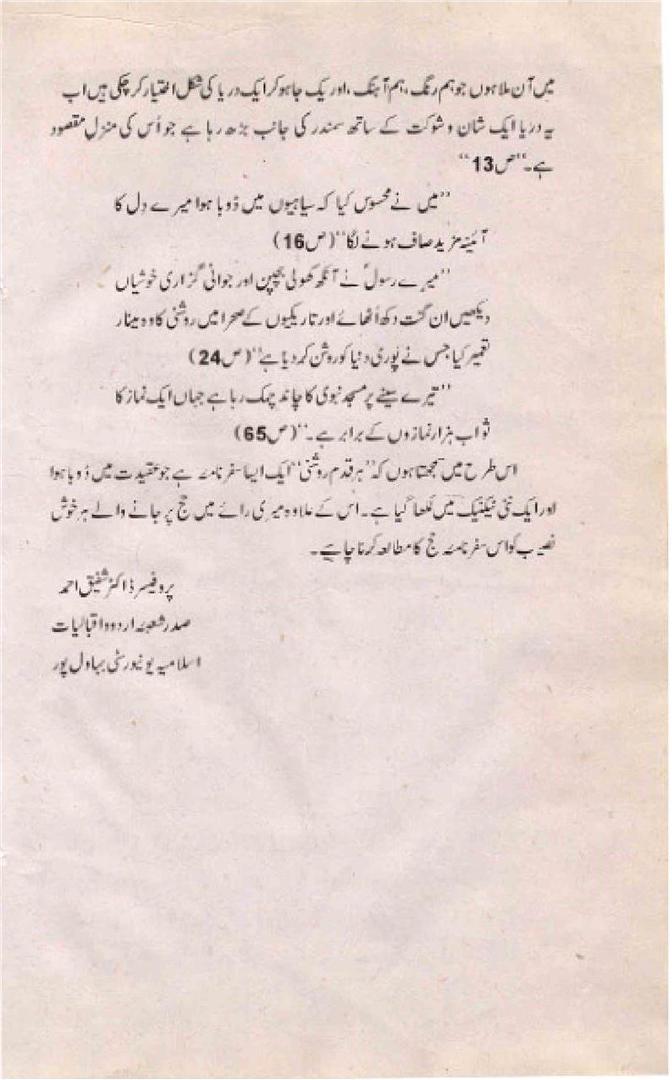 میں آن ملا ہوں جو ہم رنگ، ہم آہنگ، اور یک جا ہو کر ایک دریا کی شکل اختیار کر چکی ہیں اب
یہ دریا ایک شان و شوکت کے ساتھ سمندر کی جانب بڑھ رہا ہے جو اُس کی منزل مقصود
ہے۔‘‘ص13‘‘
’’میں نے محسوس کیا کہ سیاہیوں میں ڈوبا ہوا میرے دِل کا
آئینہ مزید صاف ہونے لگا‘‘(ص16)
’’میرے رسولؐ نے آنکھ کھولی بچپن اور جوانی گزاری خوشیاں
دیکھیں ان گنت دکھ اُٹھائے اور تاریکیوں کے صحرا میں روشنی کا وہ مینار
تعمیر کیا جس نے پوری دنیا کو روشن کر دیا ہے‘‘(ص24)
’’تیرے سینے پر مسجد نبوی کا چاند چمک رہا ہے جہاں ایک نماز کا
ثواب ہزار نمازوں کے برابر ہے۔‘‘(ص65)
اس طرح میں سمجھتا ہوں کہ ’’ہر قدم روشنی‘‘ ایک ایسا سفر نامہ ہے جو عقیدت میں ڈوبا ہوا
اور ایک نئی ٹیکنیک میں لکھا گیا ہے۔ اس کے علاوہ میری رائے میں حج پر جانے والے ہر خوش
نصیب کو اس سفر نامۂ حج کا مطالعہ کرنا چاہیے۔
پروفیسر ڈاکٹر شفیق احمد
صدر شعبۂ اردو و اقبالیات
اسلامیہ یونیورسٹی بہاول پور